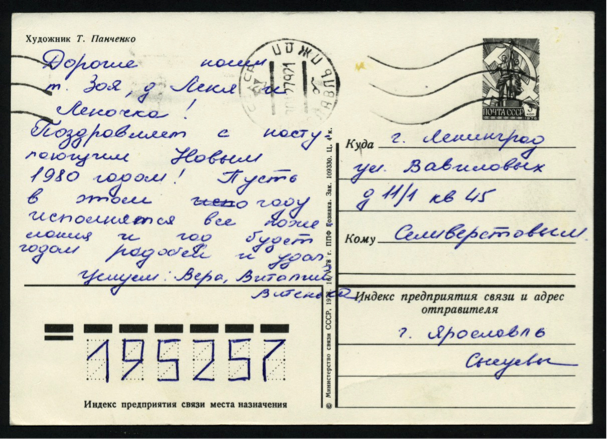 Художник Т. Панченко
Дорогие наши
т. Зоя, д. Леня и
Леночка!
Поздравляем с насту
пающим Новым
1980 годом! Пусть
в этом году
исполнятся все поже
лания и год будет
годом радостей и удач
Целуем: Вера, Виталий
Витенька
ПОЧТА СССР
Куда г. Ленинград
ул. Вавиловых
д 11/1 кв 45
Кому Селиверстовым
Индекс предприятия связи и адрес
отправителя
г. Ярославль
195257
Индекс предприятия связи места назначения
© Министерство связи СССР